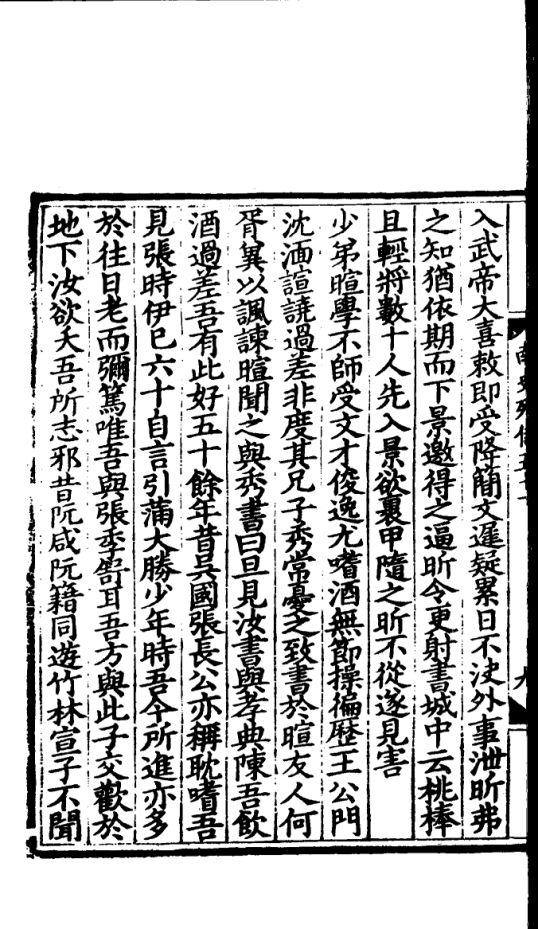 入武帝大喜敕即受降簡文遲疑累日不決外事泄昕弗
之知猶依期而下景邀得之逼昕令更射書城中云桃棒
且輕將數十人先入景欲裹甲隨之昕不從遂見害
少弟暄學不師受文才俊逸尤嗜酒無節操徧歷王公門
沈湎諠譊過差非度其兄子秀常憂之致書於暄友人何
胥冀以諷諫暄聞之與秀書曰旦見汝書與孝典陳吾飲
酒過差吾有此好五十餘年昔吳國張長公亦稱耽嗜吾
見張時伊巳六十自言引蒲大勝少年時吾今所進亦多
於往日老而彌篤唯吾與張季哿耳吾方與此子交歡於
地下汝欲夭吾所志邪昔阮咸阮籍同遊竹林宣子不聞